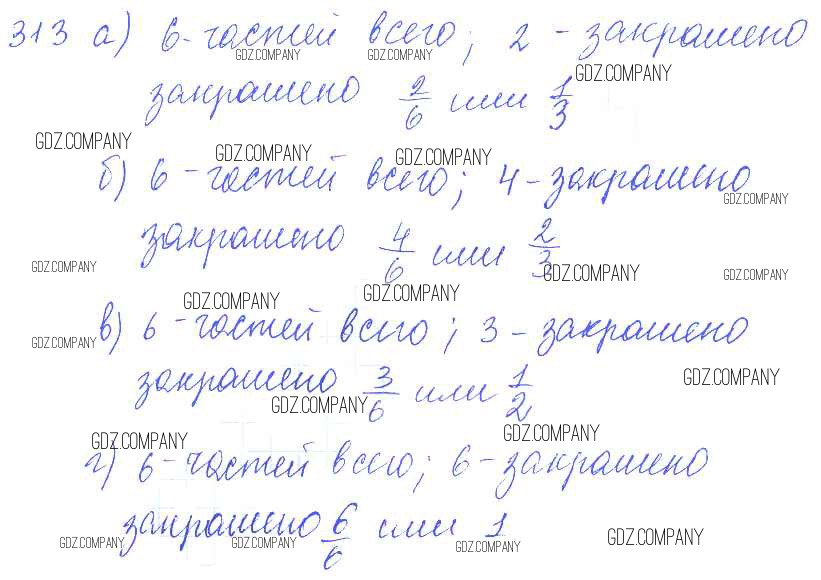 313 а) 6-частей всего; 2 - закрашено
GDZ.COMPANY GDZ.COMPANY
GDZ.COMPANY
закрашено 2/6 или 1/3
GDZ.COMPANY
GDZ.COMPANY GDZ.COMPANY
б) 6 - частей всего; 4 - закрашено
GDZ.COMPANY
закрашено 4/6 или 2/3
GDZ.COMPANY GDZ.COMPANY GDZ.COMPANY
GDZ.COMPANY GDZ.COMPANY
в) 6 - частей всего; 3 - закрашено
GDZ.COMPANY
закрашено 3/6 или 1/2
GDZ.COMPANY GDZ.COMPANY
GDZ.COMPANY GDZ.COMPANY
г) 6 - частей всего; 6 - закрашено
закрашено 6/6 или 1
GDZ.COMPANY GDZ.COMPANY GDZ.COMPANY GDZ.COMPANY